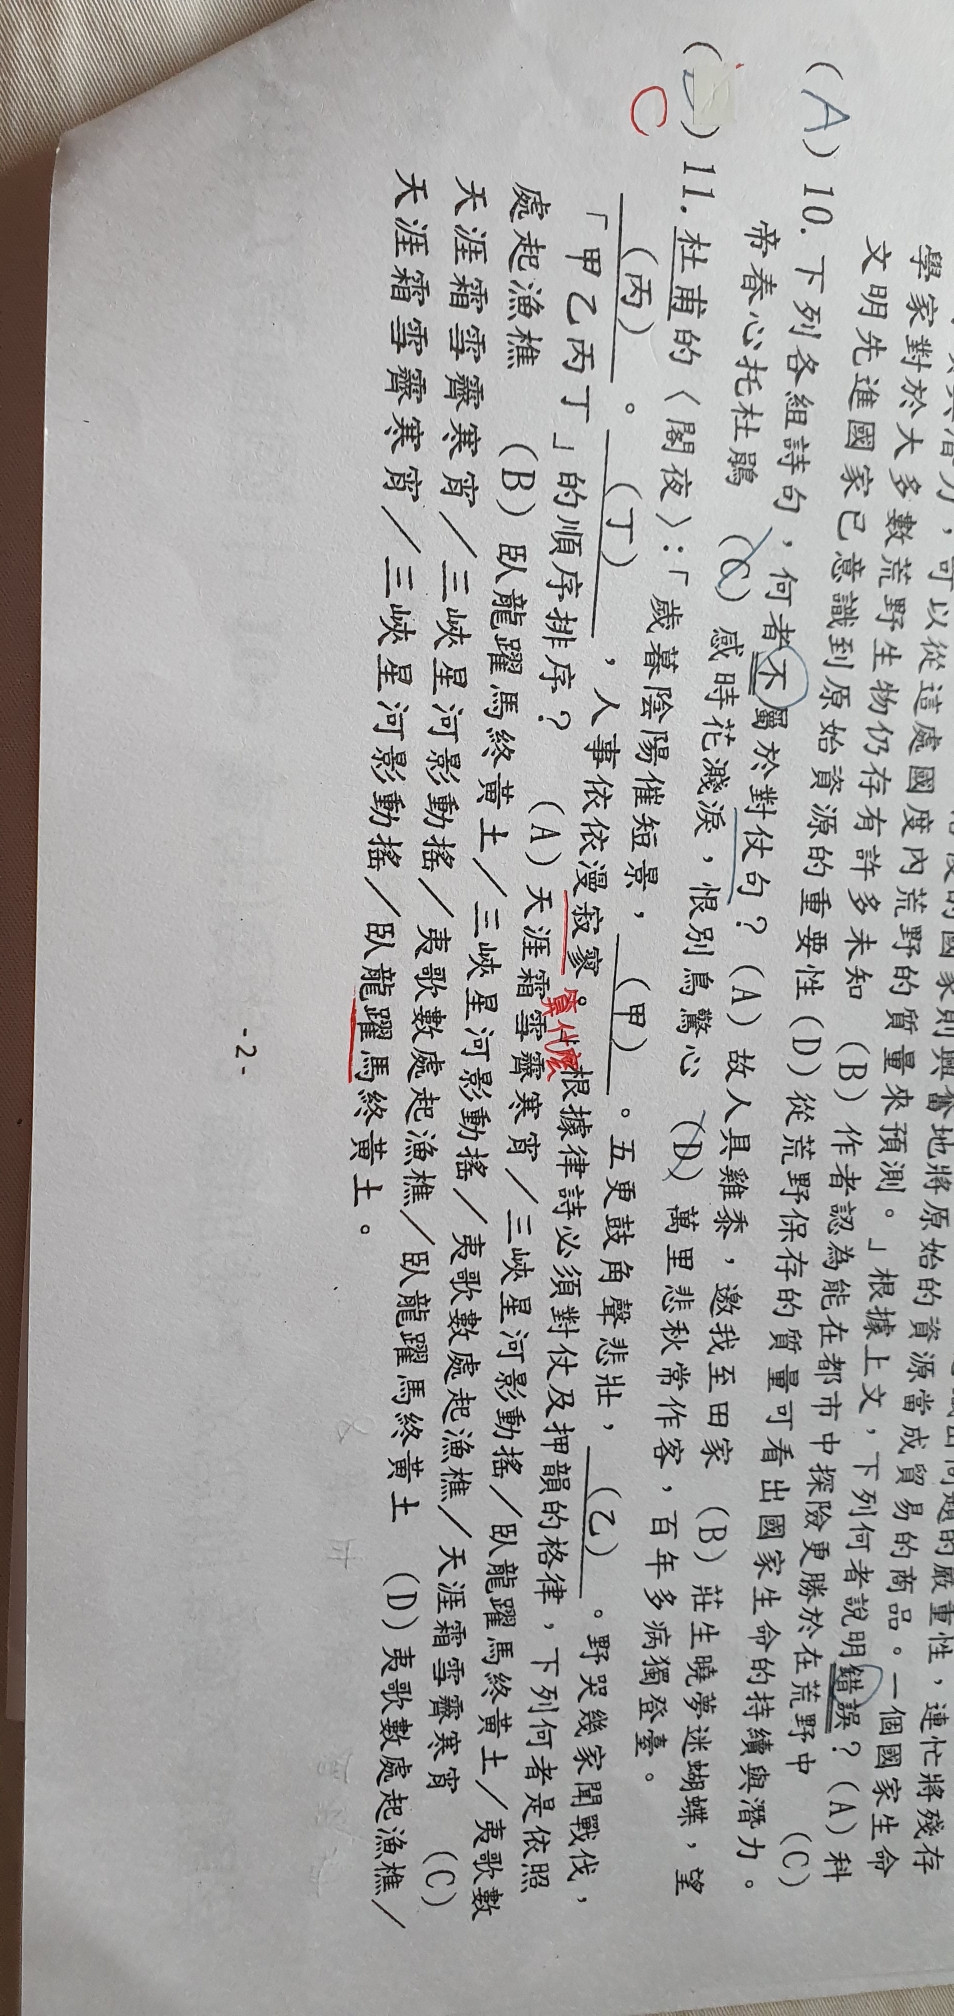 學家對於大多數荒野生物仍存有許多未知 (B) 作者認為能在都市中探險更勝於在荒野中 (C)
文明先進國家已意識到原始資源的重要性 (D) 從荒野保存的質量可看出國家生命的持續與潛力。
(A) 10. 下列各組詩句,何者不屬於對仗句?(A) 故人具雞黍,邀我至田家 (B) 莊生曉夢迷蝴蝶,望
帝春心托杜鵑 (C) 感時花濺淚,恨別鳥驚心 (D) 萬里悲秋常作客,百年多病獨登臺。
( ) 11. 杜甫的〈閣夜〉:「歲暮陰陽催短景, (甲) 。五更鼓角聲悲壯, (乙) 。野哭幾家聞戰伐,
C
(丙) 。 (丁) ,人事依依漫寂寥。根據律詩必須對仗及押韻的格律,下列何者是依照
「甲乙丙丁」的順序排序? (A) 天涯霜雪霽寒宵/三峽星河影動搖/臥龍躍馬終黃土/夷歌數
處起漁樵 (B) 臥龍躍馬終黃土/三峽星河影動搖/夷歌數處起漁樵/天涯霜雪霽寒宵 (C)
天涯霜雪霽寒宵/三峽星河影動搖/夷歌數處起漁樵/臥龍躍馬終黃土 (D) 夷歌數處起漁樵/
天涯霜雪霽寒宵/三峽星河影動搖/臥龍躍馬終黃土。
-2-